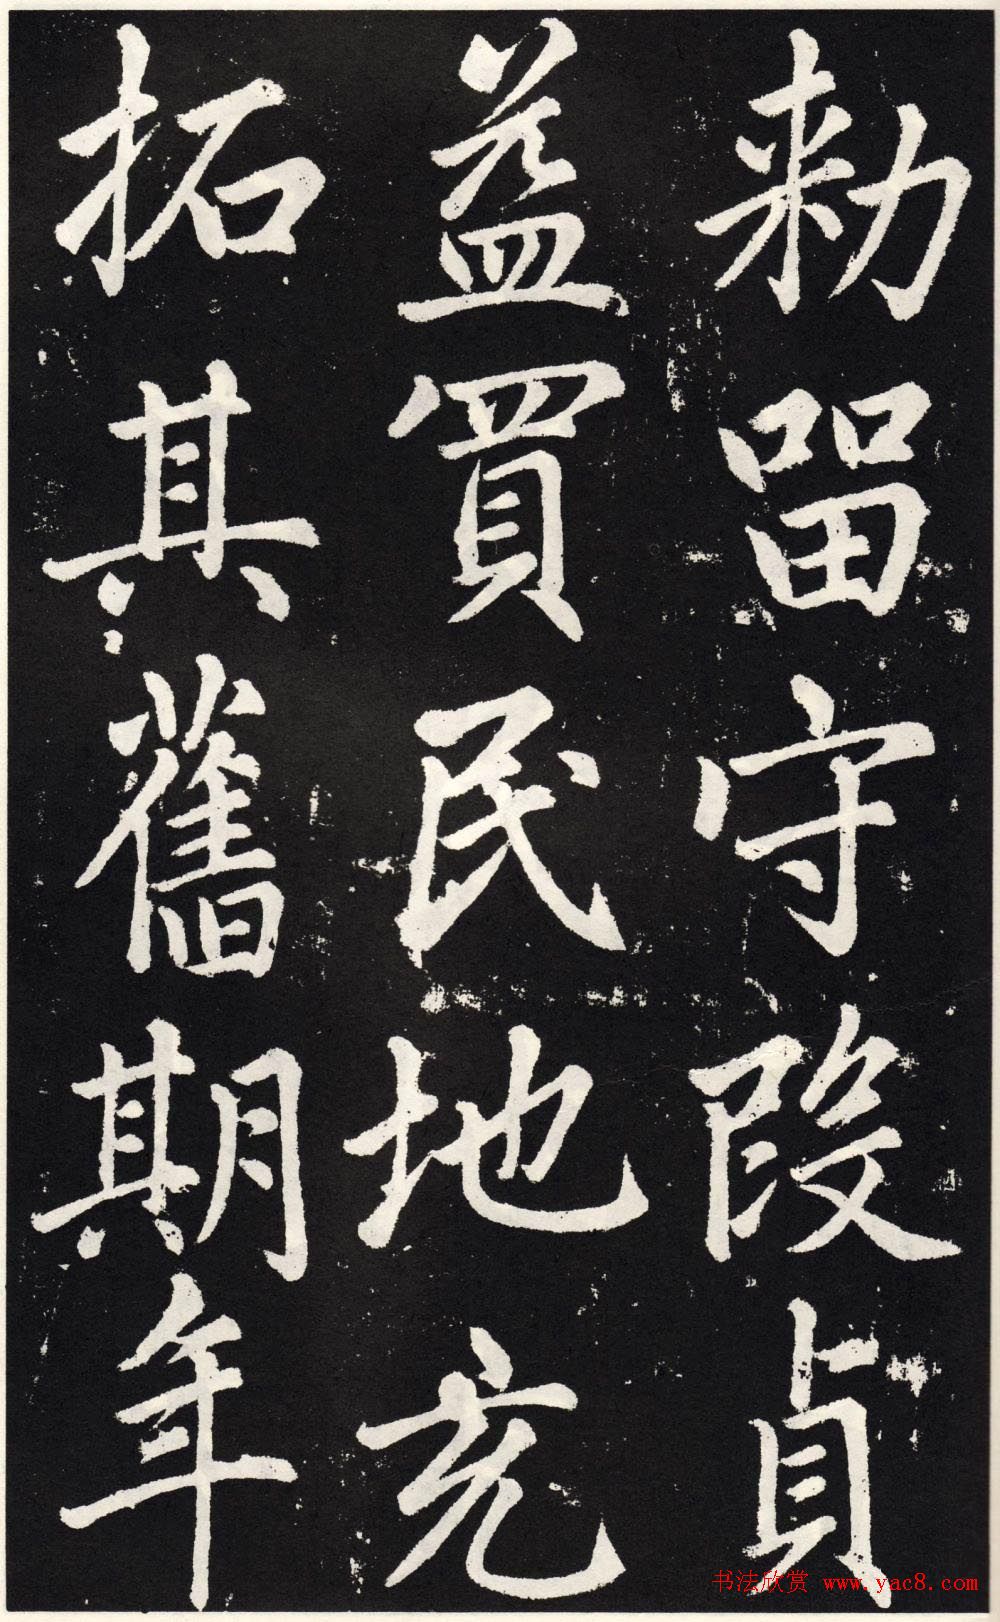 勑留守段貞
益買民地充
拓其舊期年
书法欣赏 www.yac8.com